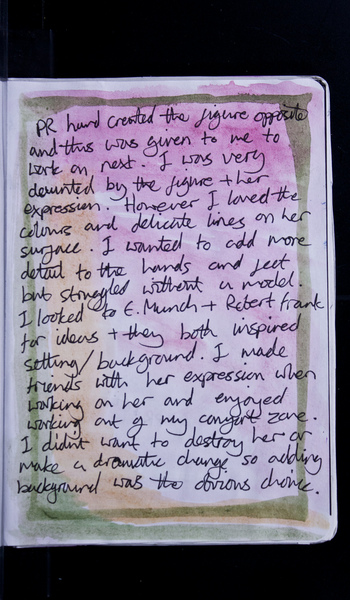 PR hand created the figure opposite
and this was given to me to
work on next. I was very
daunted by the figure + her
expression. However I loved the
colours and delicate lines on her
surface. I wanted to add more
detail to the hands and feet
but struggled without a model.
I looked to E. Munch + Robert Frank
for ideas + they both inspired
setting/background. I made
friends with her expression when
working on her and enjoyed
working out of my comfort zone.
I didnt want to destroy her or
make a dramatic change so adding
background was the obvious choice.